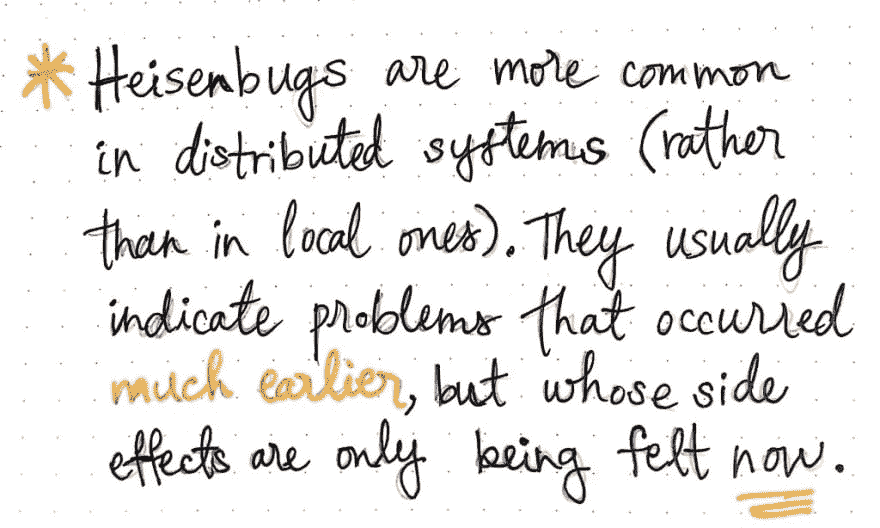 * Heisenbugs are more common
in distributed systems (rather
than in local ones). They usually
indicate problems that occurred
much earlier, but whose side
effects are only being felt now.